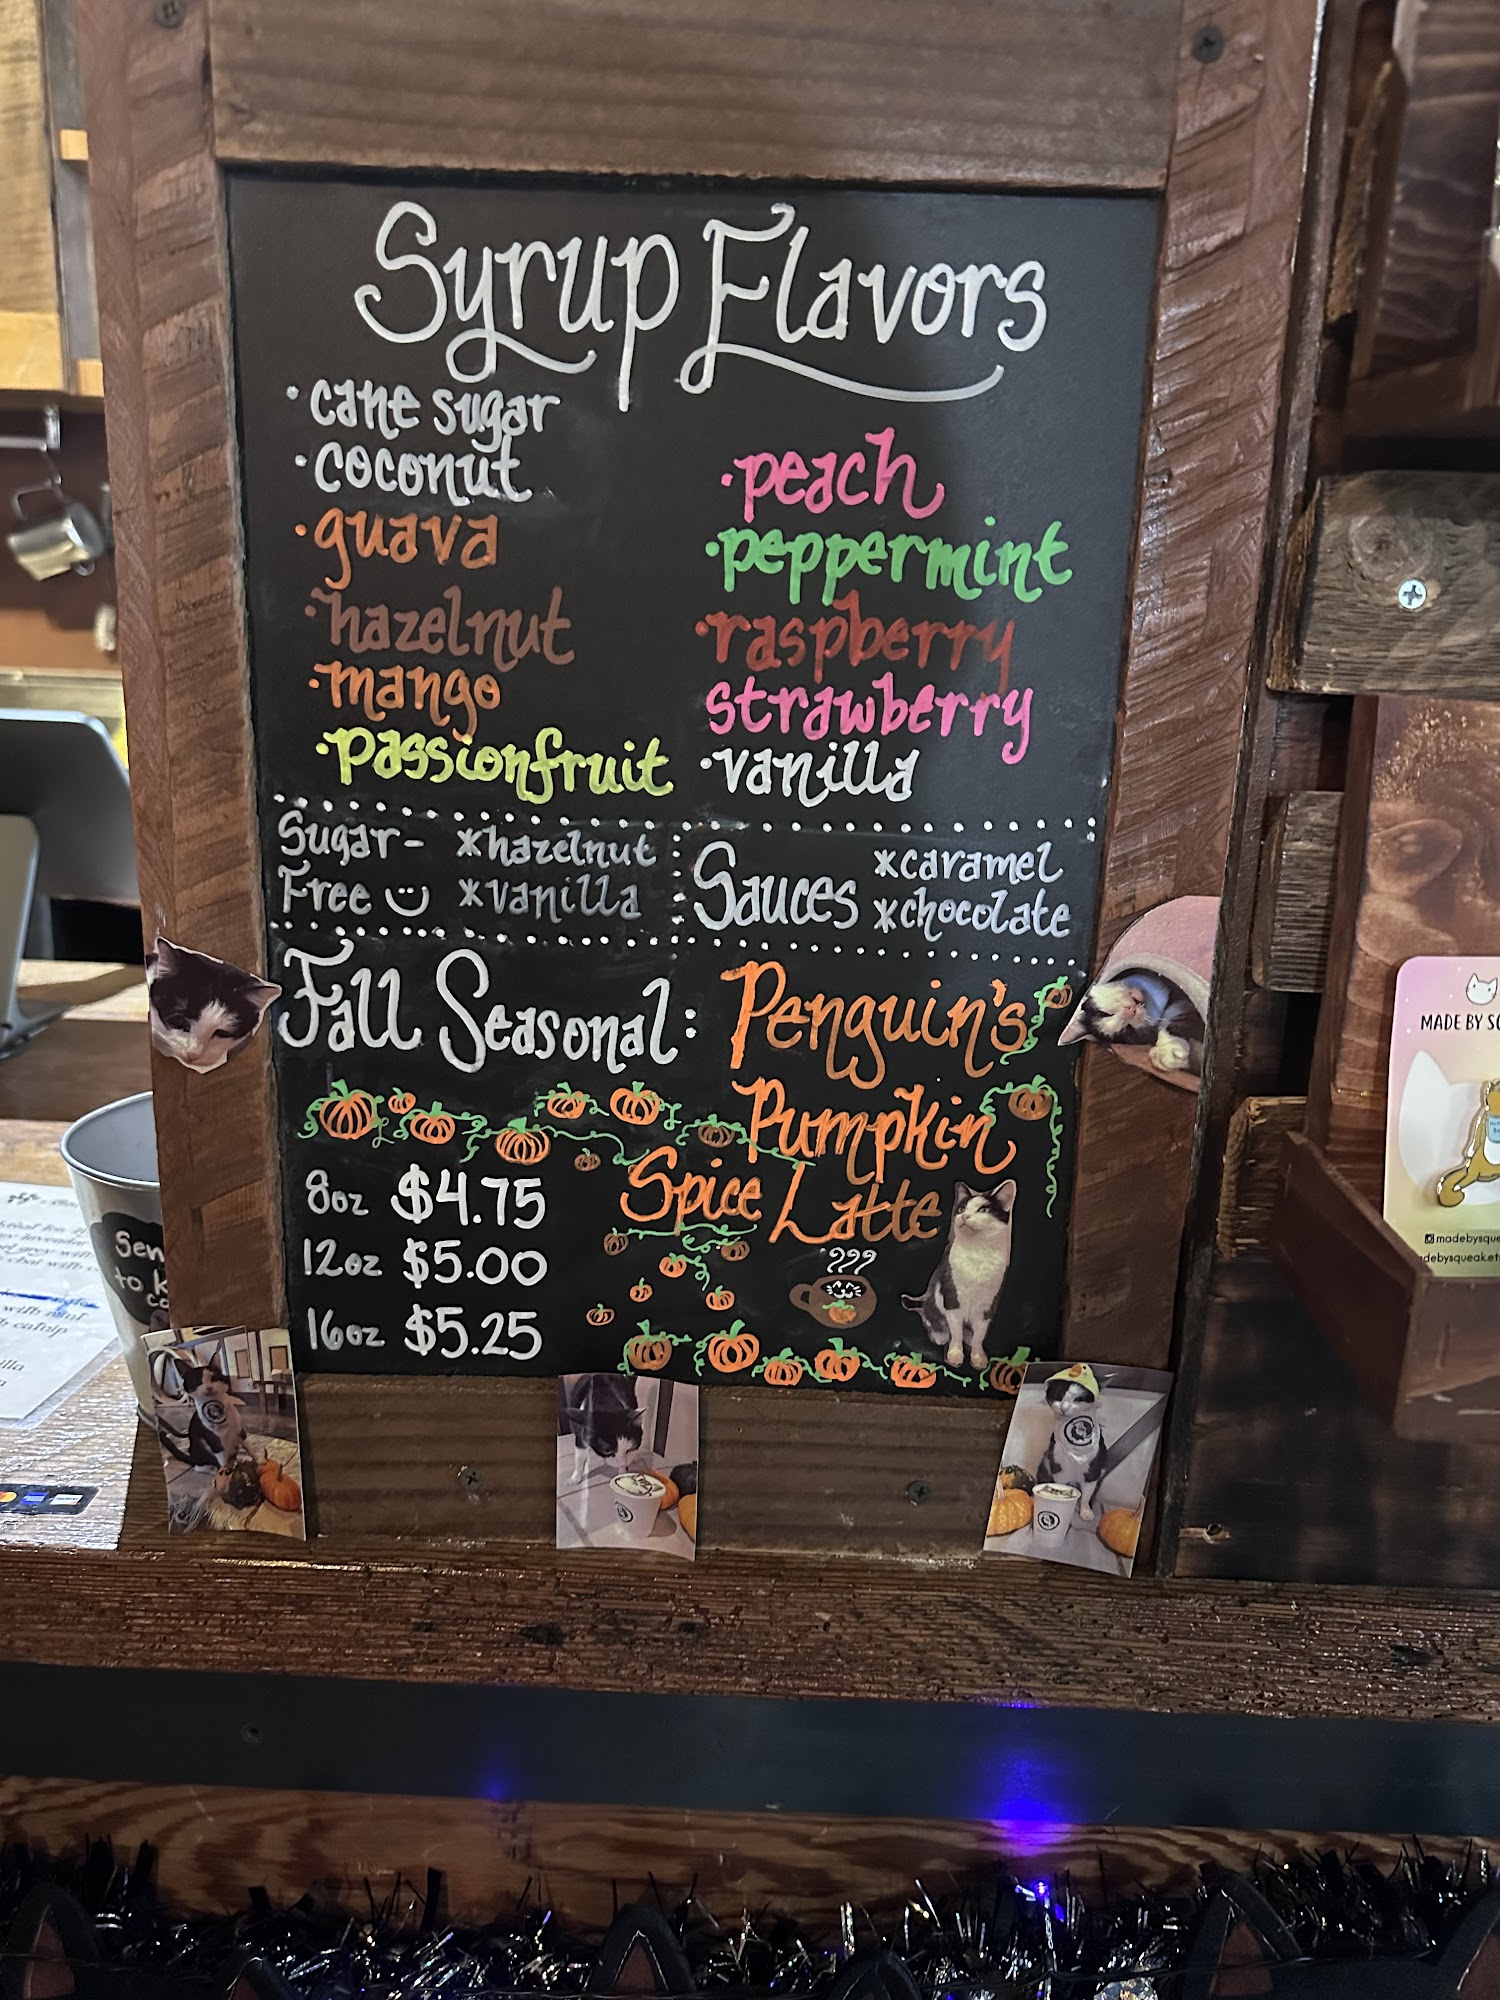 Syrup Flavors
• cane sugar
• coconut
• guava
• hazelnut
• mango
• passionfruit
• peach
• peppermint
• raspberry
strawberry
• vanilla
Sugar-
Free
*hazelnut
*vanilla
Sauces
*caramel
*chocolate
Fall Seasonal:
Penguin's
Pumpkin
Spice Latte
8oz $4.75
12oz $5.00
16oz $5.25
to
MADE BY